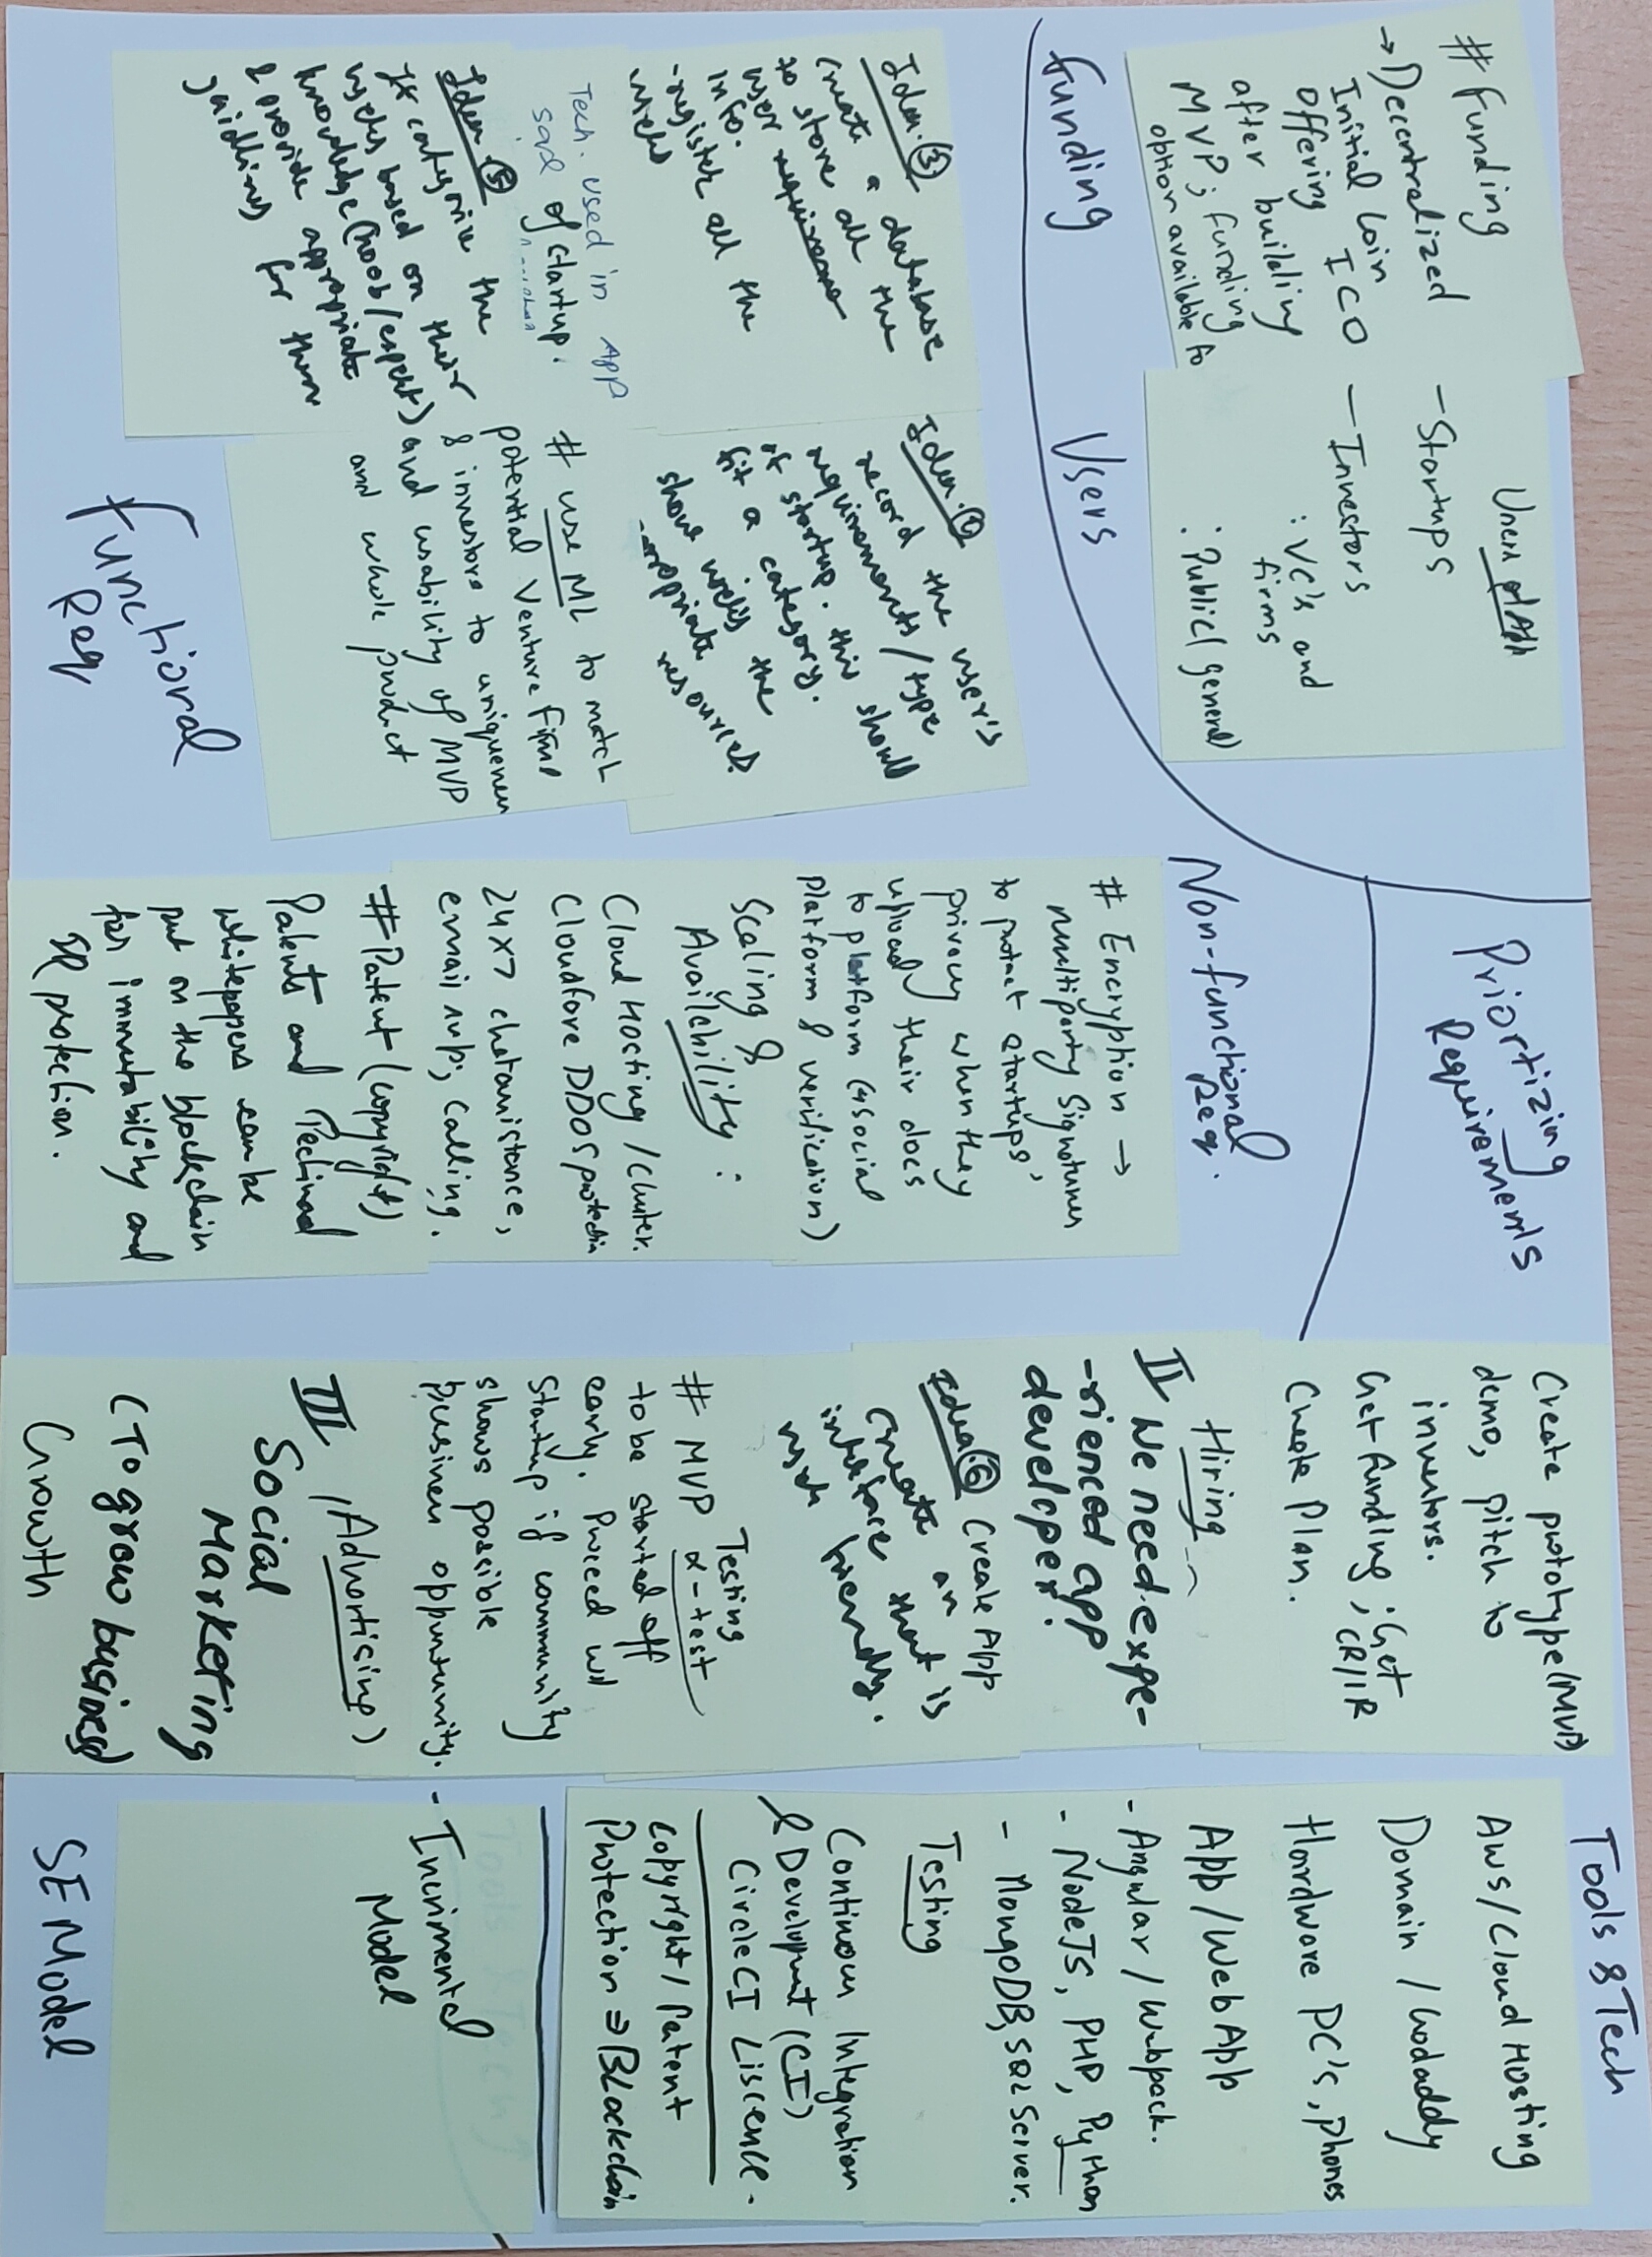 # Funding
→ Decentralized
Initial Coin
Offering ICO
after building
MVP; funding
option available to
Users of App
- Startups
- Investors
: VC's and
firms
: Public (general)
Funding
Users
Idea. (3)
Create a database
to store all the
user requireme
info.
- register all the
users
Tech. used in App
said of startup.
Idea (5)
If categorize the
users based on their
knowledge (noob/expert)
& provide appropriate
guidlines for them
Idea.
record the user's
requirements/type
of startup. this should
fit a category.
show the
resources.
# use ML to match
potential Venture firms
& investors to uniqueness
and usability of MVP
and whole product
Functional
Req
Priortizing
Requirements
Non-functional
Req.
# Encryption →
multiparty Signatures
to protect startups'
privacy when they
upload their docs
to platform (
platform & verification)
Scaling &
Availability :
Cloud Hosting/Cluster.
Cloudfare DDOS protection
24x7 chatassistance,
email sub; calling.
# Patent (copyright)
Patents and Technical
whitepapers can be
put on the blockchain
for immutability and
IP protection.
Create prototype (MVP)
demo, pitch to
investors.
Get funding ; Get
CR/IR
Create Plan.
Hiring
II We need expe-
-rienced app
developer.
Idea (6) Create App
Create an
interface that is
user friendly.
Testing
# MVP α-test
to be started off
early. Proceed w/
Startup if community
shows possible
business oppuntunity.
III (Advertising)
Social
Marketing
(To grow business)
Growth
Tools & Tech
Aws/Cloud Hosting
Domain / Godaddy
Hardware PC's, phones
App/Web App
- Angular / Webpack.
- NodeJS, PHP, Python
- MongoDB, SQL Server.
Testing
Continous Integration
& Developmt (CI)
CircleCI Liscence.
Copyright/Patent
Protection ⇒ Blockchain
- Incrimental
Model
SE Model